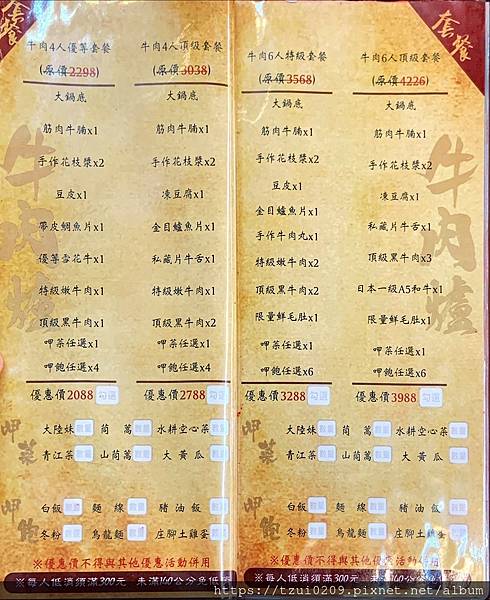 套餐
牛肉4人優等套餐
(原價2298)
大鍋底
筋肉牛腩x1
手作花枝漿x2
豆皮x1
帶皮鯛魚片x1
優等雪花牛x1
特級嫩牛肉x1
頂級黑牛肉x1
呷菜任選x1
呷飽任選x4
優惠價2088 勾選
牛肉4人頂級套餐
(原價3038)
大鍋底
筋肉牛腩x1
手作花枝漿x2
凍豆腐x1
金目鱸魚片x1
私藏片牛舌x1
特級嫩牛肉x1
頂級黑牛肉x2
呷菜任選x1
呷飽任選x4
優惠價2788 勾選
大陸妹 數量 茼萵 數量 水耕空心菜 數量
青江菜 數量 山茼萵 數量 大黃瓜 數量
白飯 數量 麵線 數量 豬油飯 數量
冬粉 數量 烏龍麵 數量 庄腳土雞蛋 數量
呷菜
呷飽
牛肉爐
※優惠價不得與其他優惠活動併用
※每人低消須滿300元 未滿140公分免低消
套餐
牛肉6人特級套餐
(原價3568)
大鍋底
筋肉牛腩x1
手作花枝漿x2
豆皮x1
金目鱸魚片x1
手作牛肉丸x1
特級嫩牛肉x2
頂級黑牛肉x2
限量鮮毛肚x1
呷菜任選x1
呷飽任選x6
優惠價3288 勾選
牛肉6人頂級套餐
(原價4226)
大鍋底
筋肉牛腩x1
手作花枝漿x2
凍豆腐x1
私藏片牛舌x1
頂級黑牛肉x3
日本一級A5和牛x1
限量鮮毛肚x1
呷菜任選x1
呷飽任選x6
優惠價3988 勾選
大陸妹 數量 茼萵 數量 水耕空心菜 數量
青江菜 數量 山茼萵 數量 大黃瓜 數量
白飯 數量 麵線 數量 豬油飯 數量
冬粉 數量 烏龍麵 數量 庄腳土雞蛋 數量
呷菜
呷飽
牛肉爐
※優惠價不得與其他優惠活動併用
※每人低消須滿300元 未滿140公分免低消
https://tzui0209.pixnet.net/album